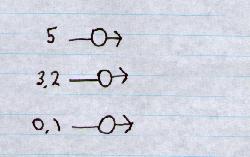 5
3,2
0,1